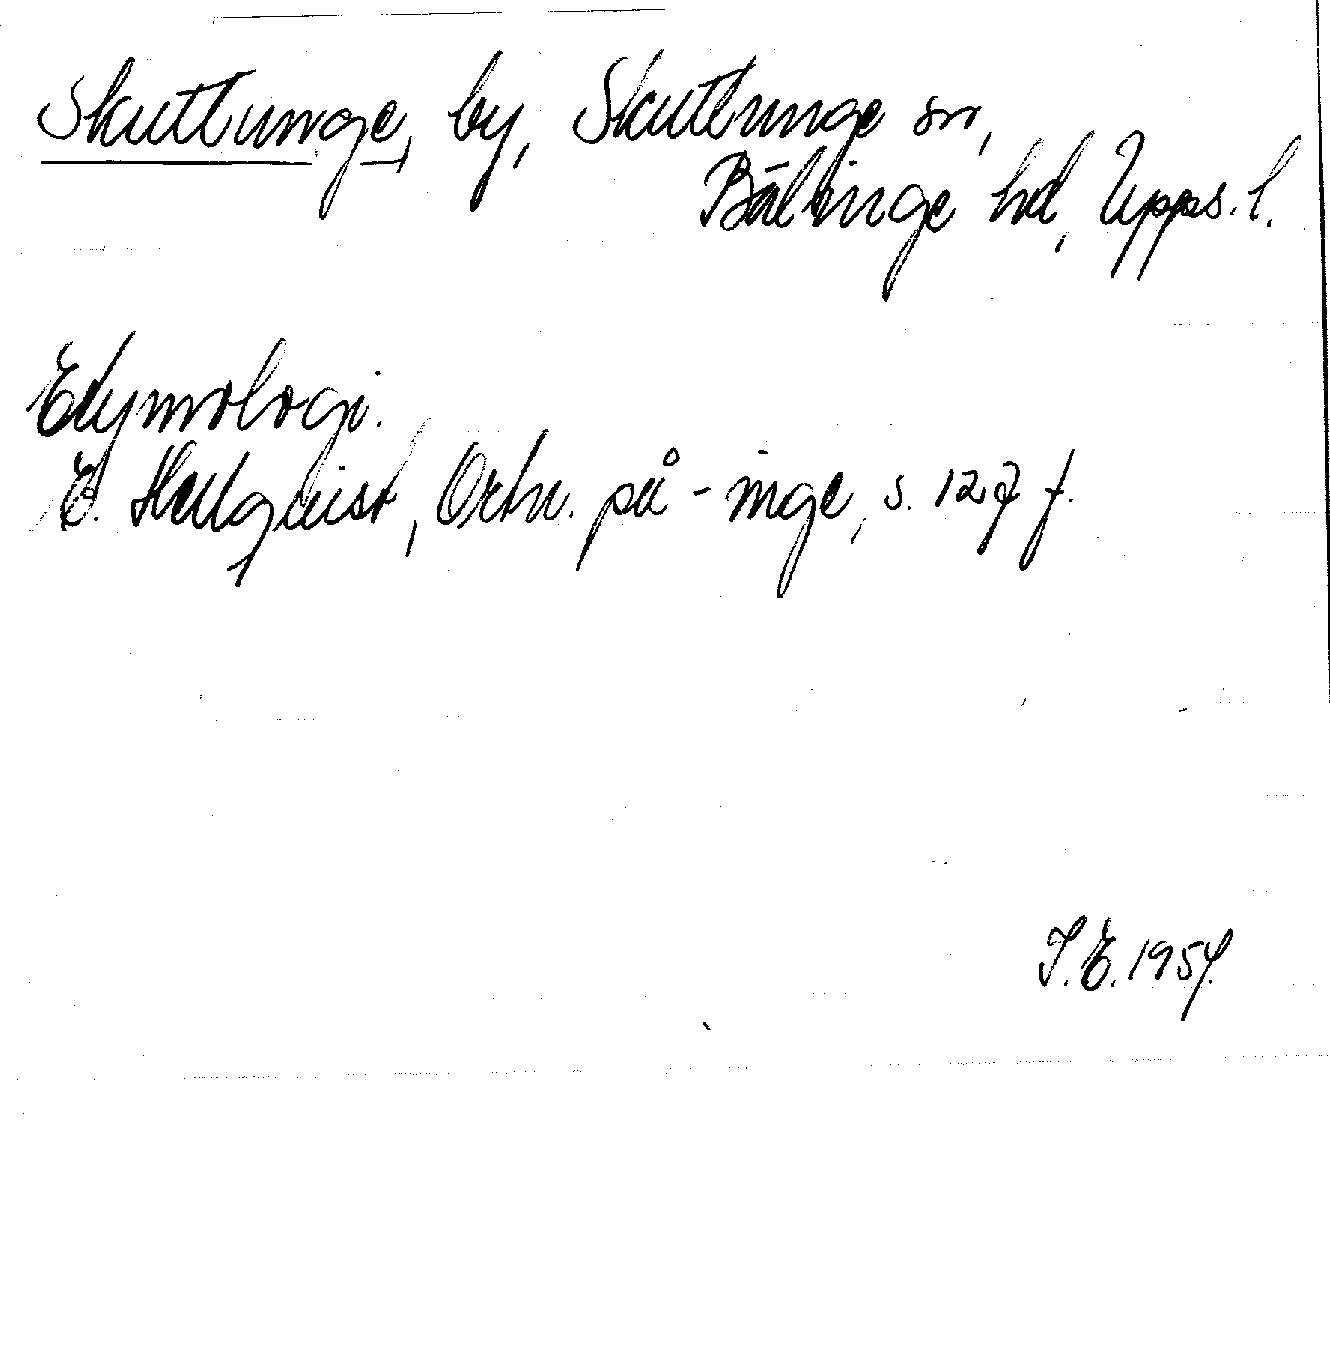 Skuttunge, by, Skuttunge sn,
Bälinge hd, Upps. l.
Etymologi.
E. Hellquist, Ortn. på -inge, s. 127 f.
I. E. 1954.